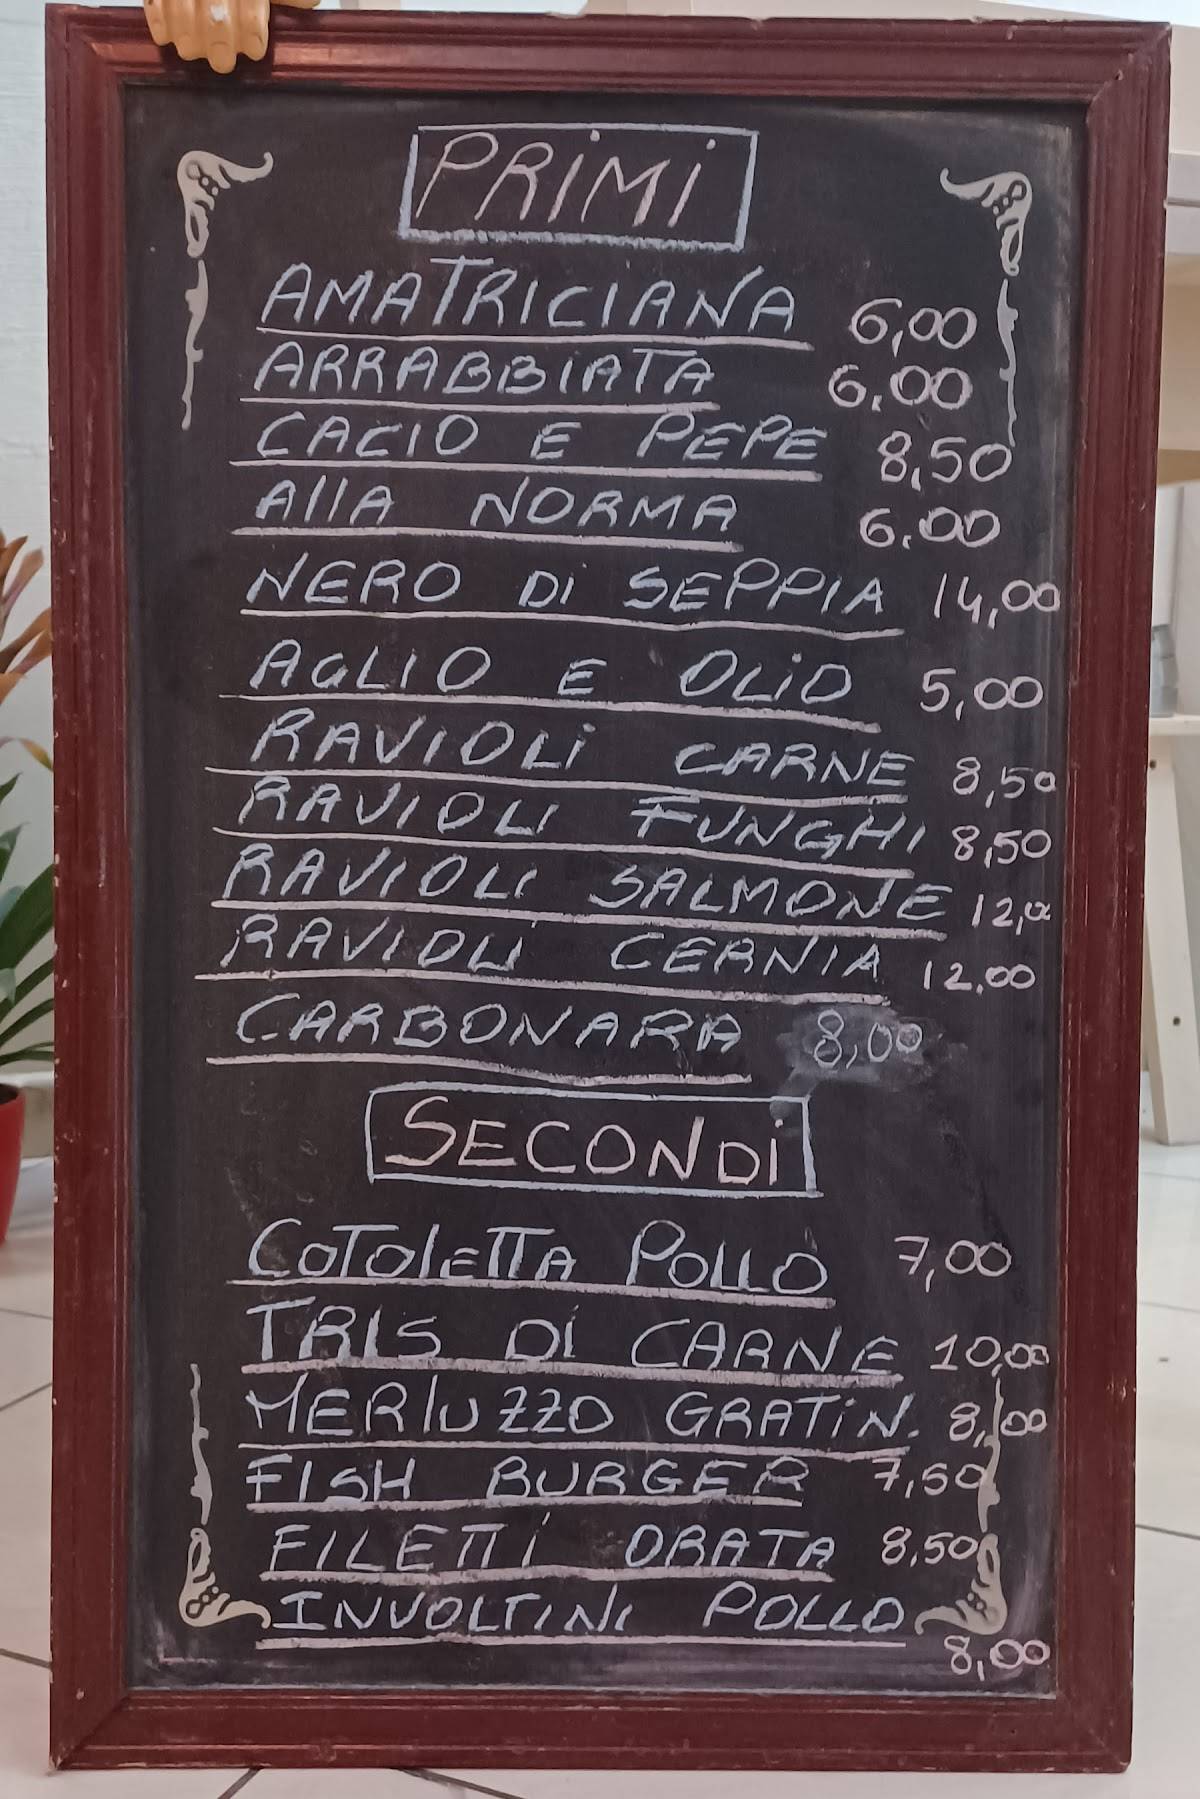 PRiMi
AMATRICIANA 6,00
ARRABBIATA 6.00
CACIO E PEPE 8,50
AllA NORMA 6.00
NERO Di SEPPIA 14,00
AGLIO E OLiO 5,00
RAVIOLi CARNE 8,50
RAVIOLI FUNGHI 8,50
RAVIOLI SALMONE 12,00
RAVIOLI CERNIA 12,00
CARBONARA 8,00
SECONDi
COTOlETTA POLLO 7,00
TRIS Di CARNE 10,00
MERlUZZO GRATiN. 8,00
FISH BURGER 7,50
FILETTi ORATA 8,50
INVOLTINI POLLO
8,00